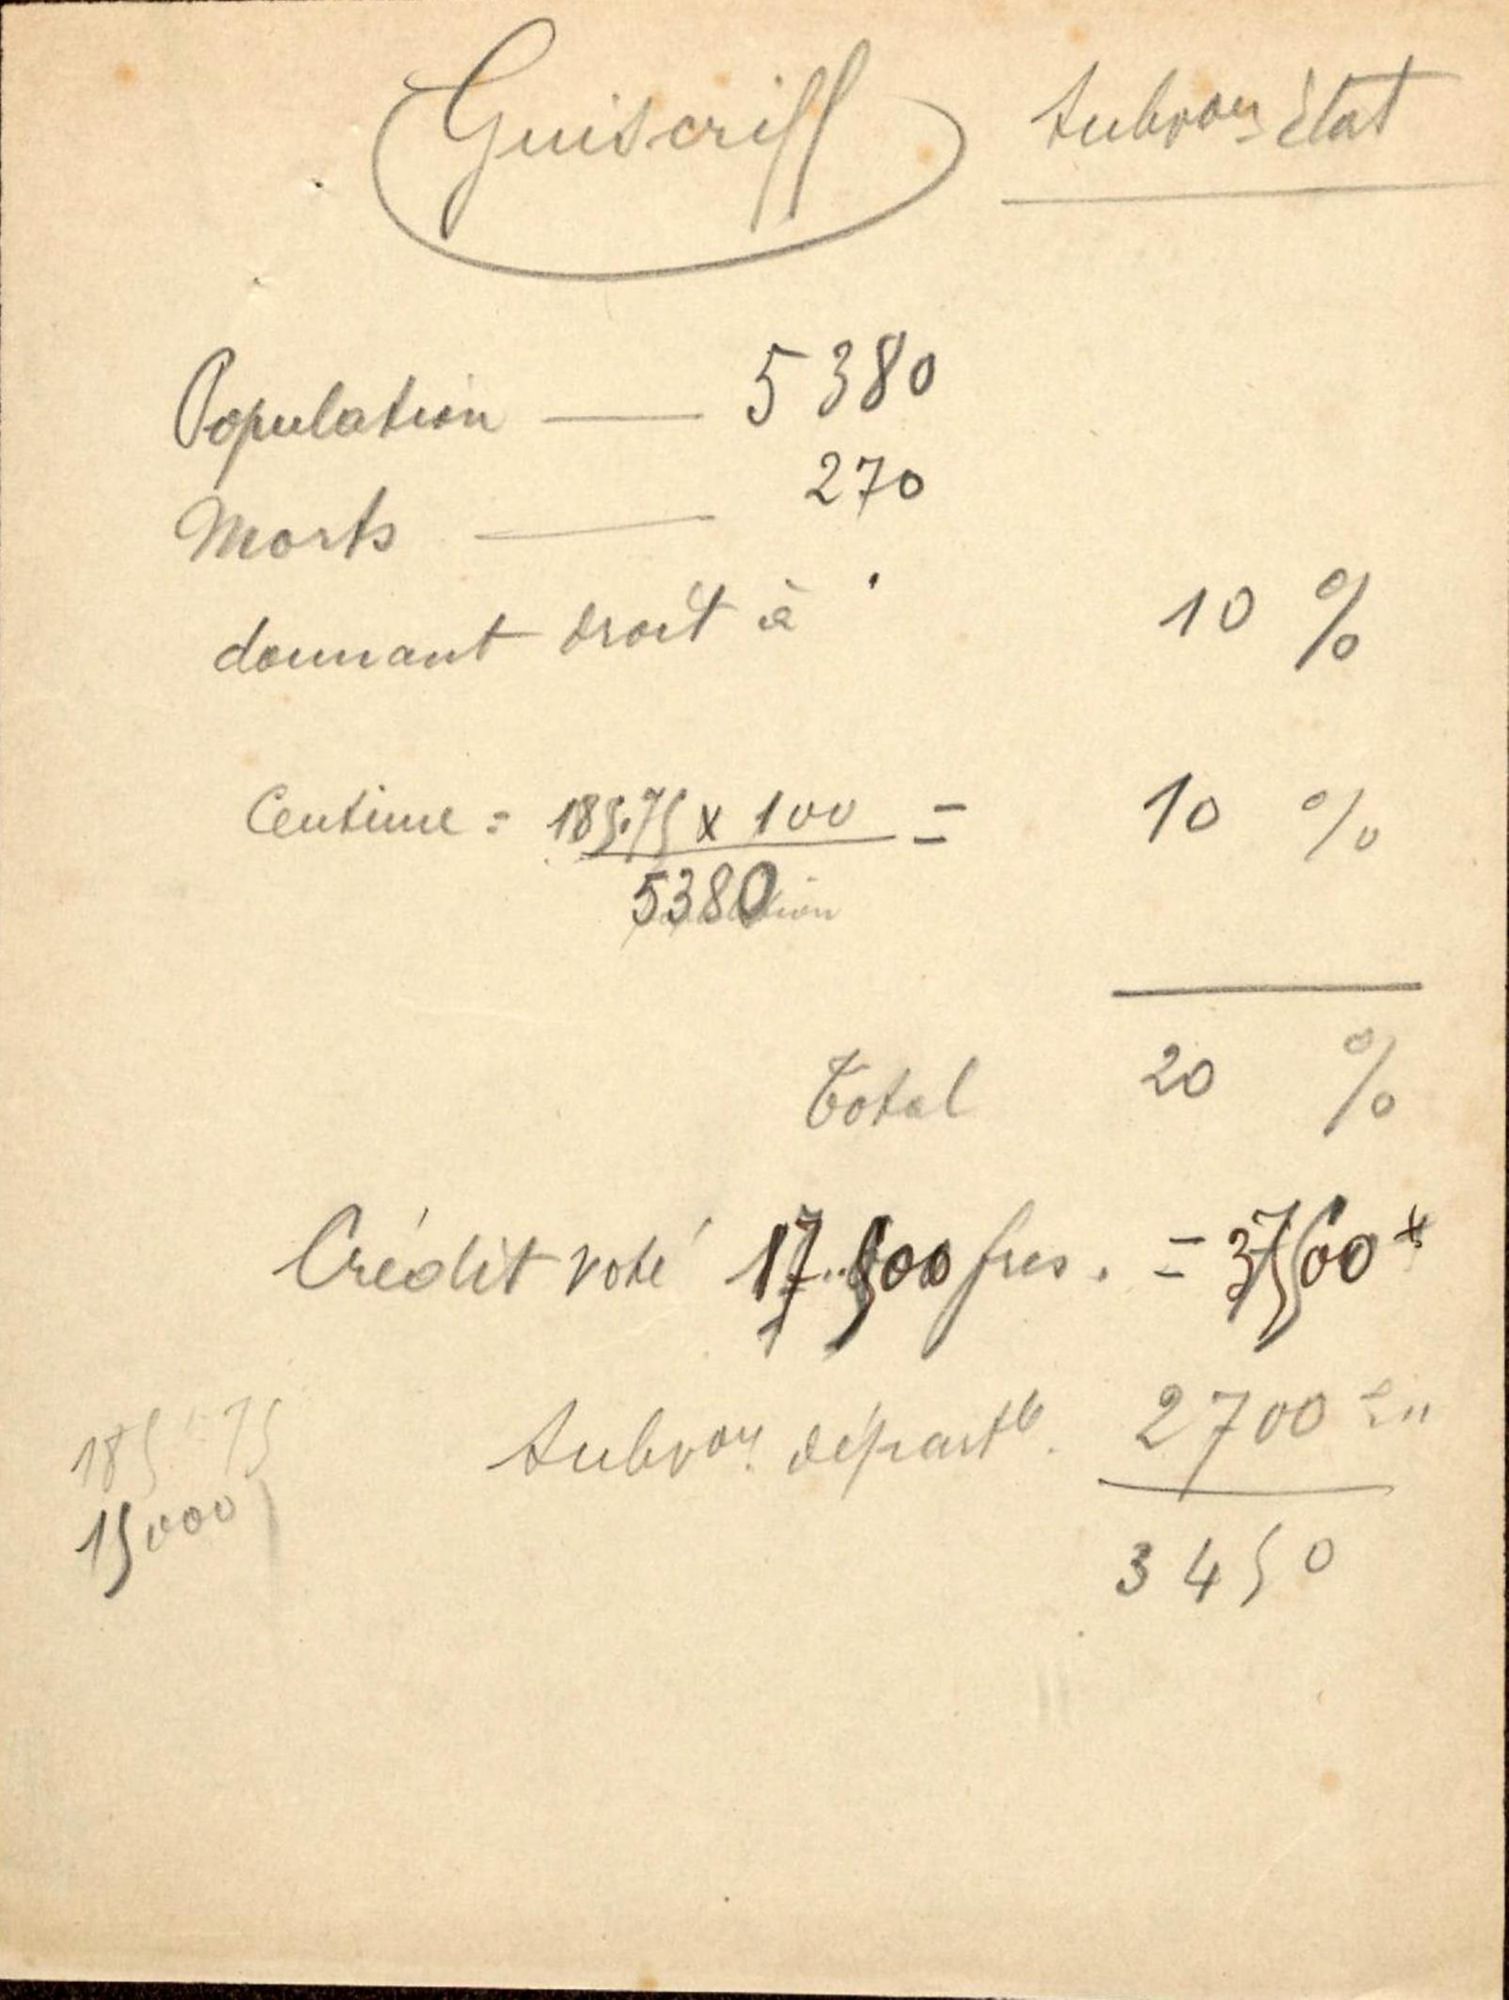 Guiscriff Subvon État
Population — 5380
Morts — 270
donnant droit à 10 %
Centime = 185.75 x 100 = 10 %
5380
Total 20 %
Crédit voté 17.500 frcs. = 3500
Subvon départle. 2700
3450
185.75
15000